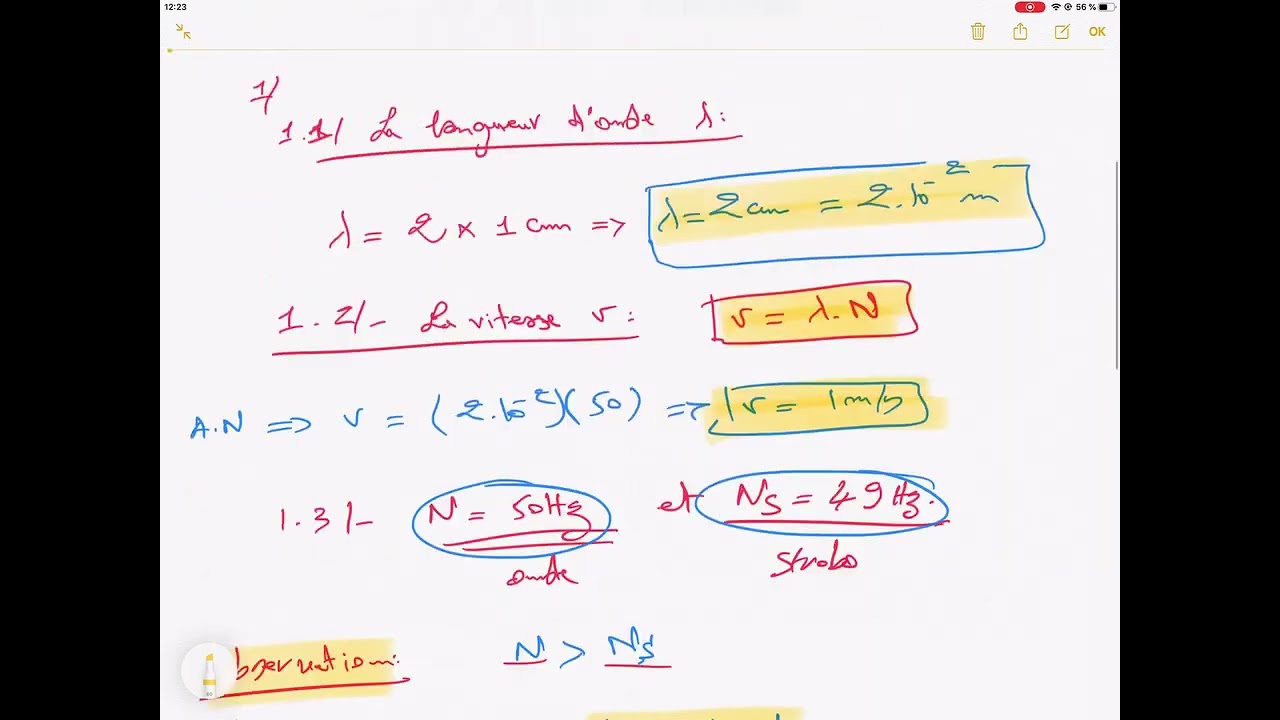 12:23
56 %
OK
1/
1.1/ La longueur d'onde λ:
λ = 2 x 1 cm => λ = 2 cm = 2.10⁻² m
1.2/- La vitesse v: v = λ.N
A.N => v = (2.10⁻²)(50) => v = 1 m/s
1.3/- N = 50Hz et Ns = 49Hz.
onde strobo
bservation: N > Ns